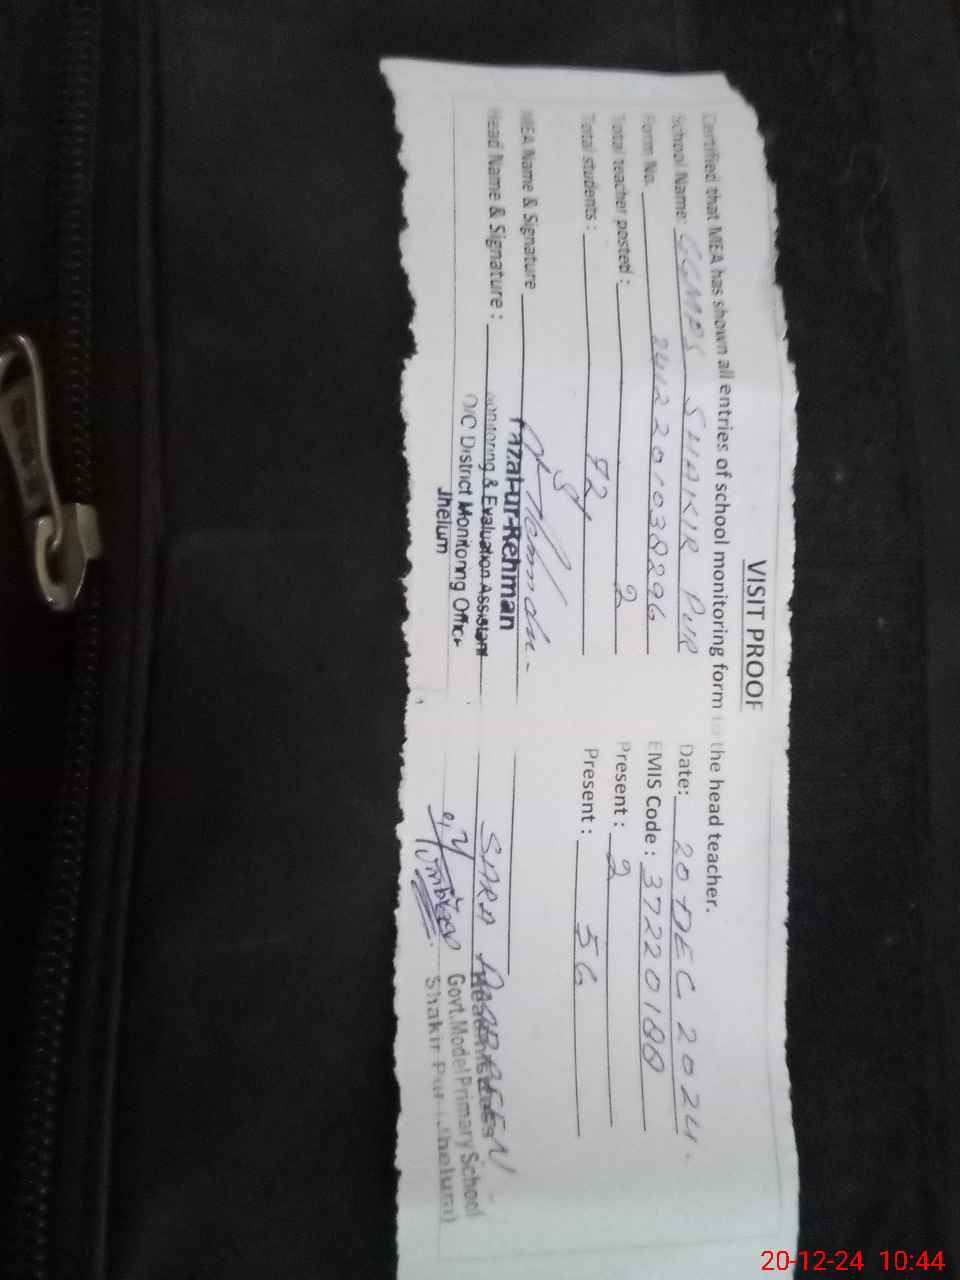 VISIT PROOF
Certified that MEA has shown all entries of school monitoring form to the head teacher.
School Name: GGMPS SHAKIR PUR Date: 20 DEC 2024.
Form No. 2412201038296 EMIS Code : 37220188
Total teacher posted : 2 Present : 2
Total students : 72 Present : 56
MEA Name & Signature
Fazal-ur-Rehman
Head Name & Signature : SARA
Monitoring & Evaluation Assistant
O/C District Monitoring Office
Jhelum
Headmistress
Govt. Model Primary School
Shakir Pur (Jhelum)
20-12-24 10:44